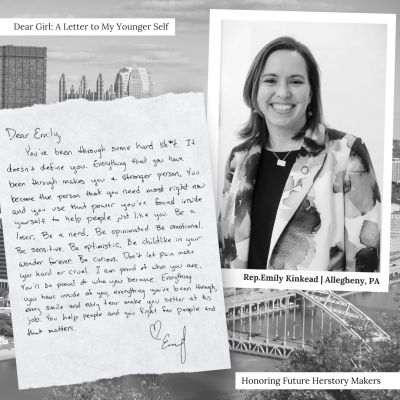 Dear Girl: A Letter to My Younger Self
Dear Emily,
You've been through some hard sh*t. It
doesn't define you. Everything that you have
been through makes you a stronger person. You
become the person that you need most right now
and you use that power you've found inside
yourself to help people just like you. Be a
loser. Be a nerd. Be opinionated. Be emotional.
Be sensitive. Be optimistic. Be childlike in your
wonder forever. Be curious. Don't let pain make
you hard or cruel. I am proud of who you are.
You'll be proud of who you become. Everything
you have inside of you, everything you've been through,
every smile and every tear make you better at this
job. You help people and you fight for people and
that matters.
Rep.Emily Kinkead | Allegheny, PA
Honoring Future Herstory Makers